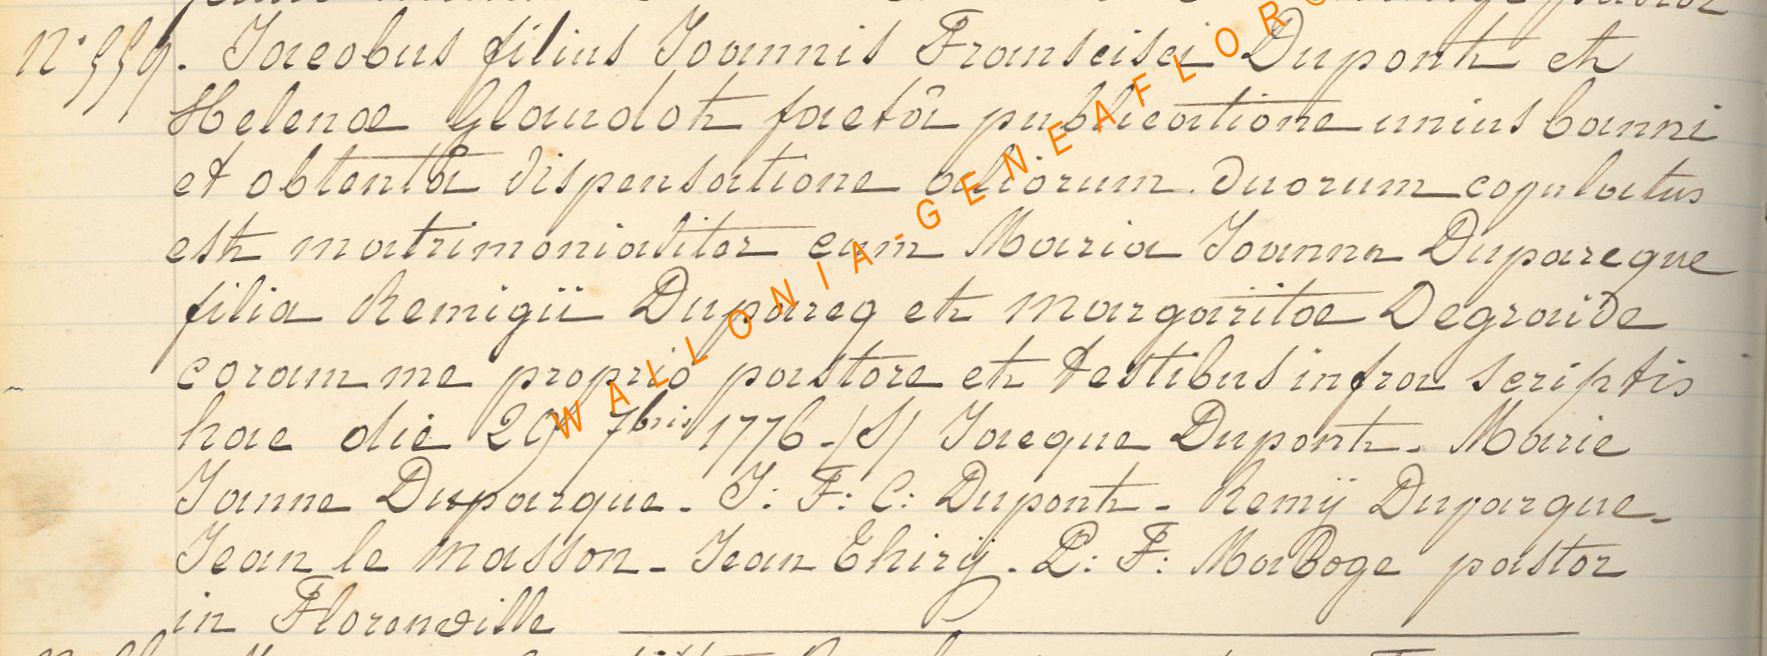 N° 559. Jacobus filius Joannis Francisci Dupont et
Helenæ Glaudot factâ publicatione unius banni
et obtentâ dispensatione aliorum duorum copulatus
est matrimonialiter cum Maria Joanna Duparcque
filia Remigii Duparcq et Margaritæ Degraide
coram me proprio pastore et testibus infra scriptis
hac die 29 7bris 1776 - /S/ Jacque Dupont - Marie
Janne Duparque - J: F: C: Dupont - Remÿ Duparque -
Jean le Masson - Jean Thirÿ - P: F: Maboge pastor
in Florenville
WALLONIA-GENEAFLOR